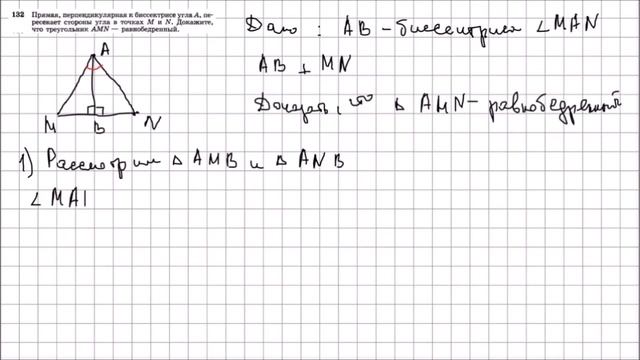 132 Прямая, перпендикулярная к биссектрисе угла A, пе-
ресекает стороны угла в точках M и N. Докажите,
что треугольник AMN — равнобедренный.
Дано : AB - биссектриса ∠MAN
AB ⊥ MN
Доказать, что △ AMN - равнобедренный
A
M B N
1) Рассмотрим △ AMB и △ ANB
∠ MAI